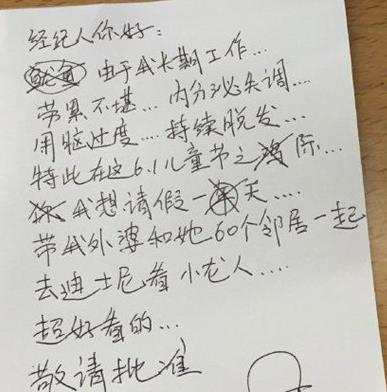 经纪人你好:
由于我长期工作...
劳累不堪... 内分泌失调....
用脑过度.... 持续脱发...
特此在这6.1儿童节之际...
我想请假一天....
带我外婆和她60个邻居一起
去迪士尼看小龙人....
超好看的...
敬请批准